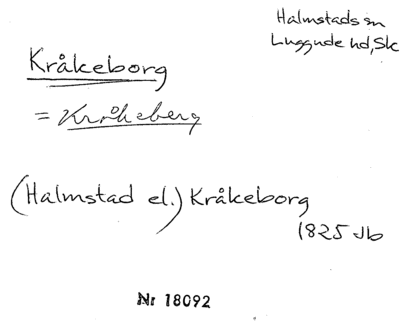 Halmstads sn
Luggude hd, Sk
Kråkeborg
= Kråkeberg
(Halmstad el.) Kråkeborg
1825 Jb
Nr 18092